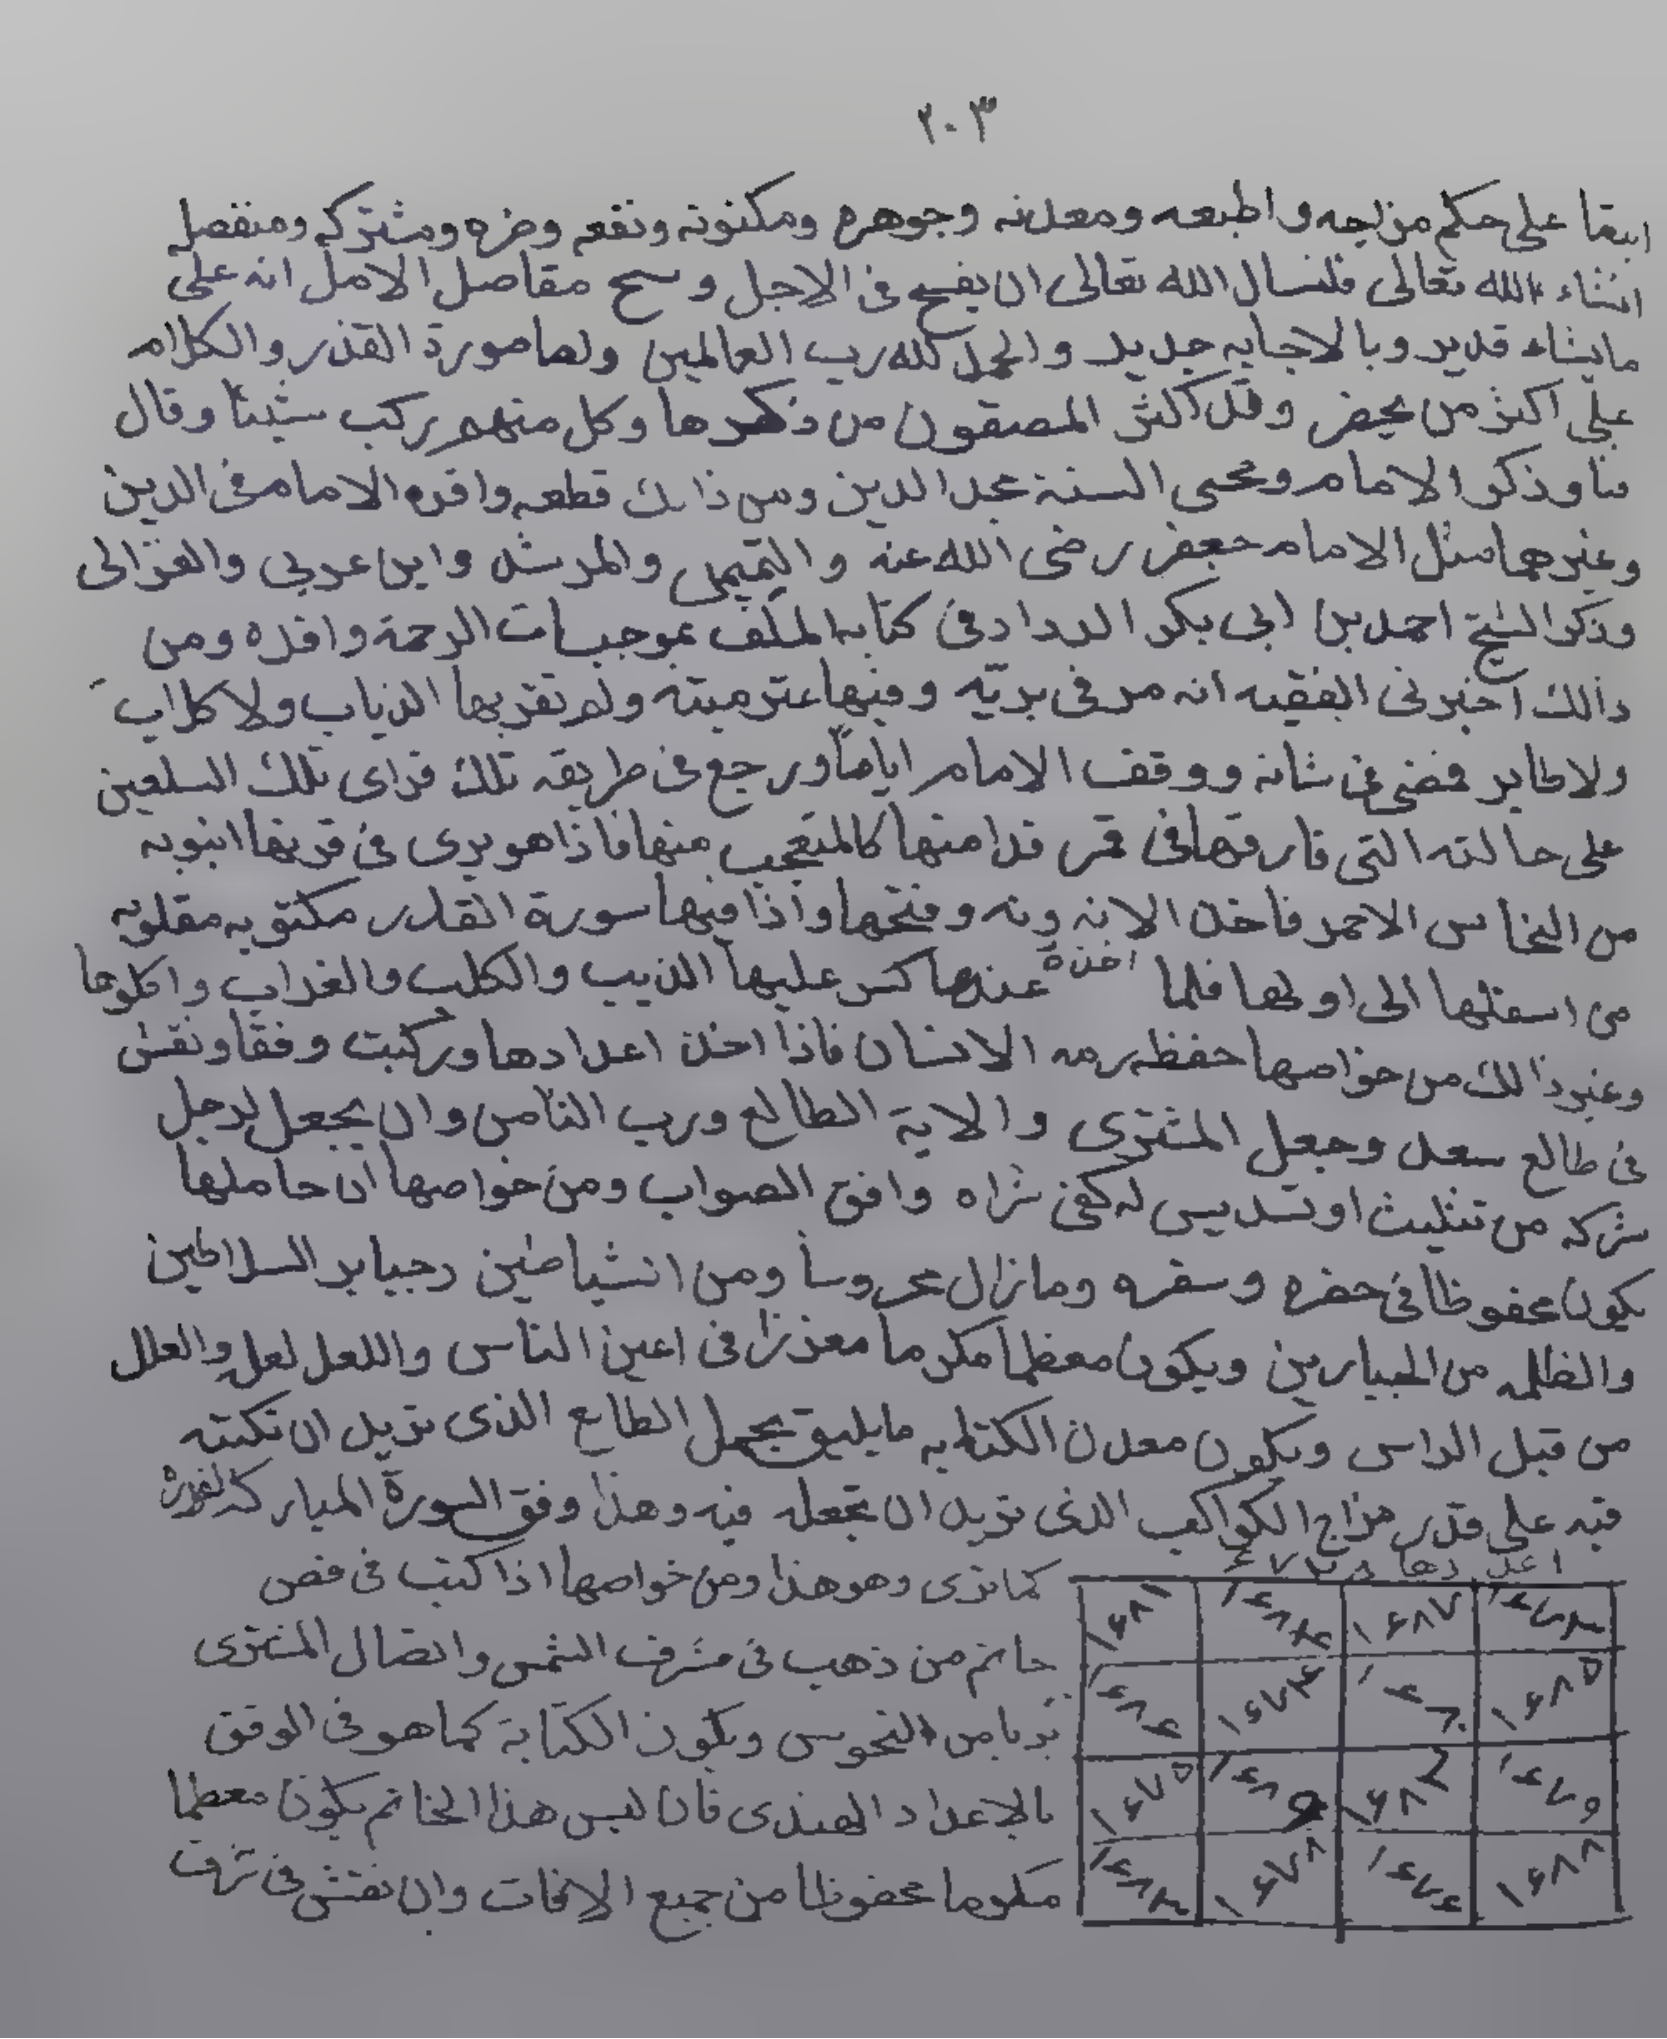 ٢٠٣
ابيقا على حكم مزاجه واطبعه ومعدنه وجوهره ومكنونه ونفعه وضره ومشتركه ومنفصله
انشاء الله تعالى فلنسال الله تعالى ان يفسح فى الاجل و مقاصل الامل انه على
مايشاء قدير وبالاجابه جدير والحمد لله رب العالمين ولها صورة القدر والكلام
على اكثر من يحفر وقد اكثر المصنفون من ذكرها وكل منهم ركب شيئا وقال
منا وذكر الامام ومحيى السنة مجد الدين ومن ذالك قطعه وافره الامام فى الدين
وغيرهما مثل الامام جعفر رضى الله عنه والتميمى والمرشد وابن عربى والغزالى
وذكر الشيخ احمد بن ابى بكر الرداد فى كتابه الملقب بموجبات الرحمة وافره ومن
ذالك اخبرنى الفقيه انه مر فى بريّه وفيها عنز ميته ولم تقربها الذياب ولا كلاب
ولا طاير فمضى فى شانه ووقف الامام اياماً ورجع فى طريقه تلك فراى تلك السلعين
على حالته التى فارقها فى قدامنها كالمتعجب منها فاذا هو يرى فى قرنها انبوبه
من النخاس الاحمر فاخذ الانه ونه وفتحها واذا فيها سورة القدر مكتوبه مقلوبه
من اسفلها الى اولها فلما اخذه عندها كسر عليها الذيب والكلب والغراب واكلوها
وغير ذالك من خواصها حفظ رمه الانسان فاذا اخذ اعدادها وركبت وفقا ونقش
فى طالع سعد وجعل المشترى والاية الطالع ورب الثامن وان يجعل لرجل
شركه من تثليث او تسديس له كفى شراه وافق الصواب ومن خواصها ان حاملها
يكون محفوظا فى حضره وسفره ومانزال محروسا ومن الشياطين وجبابر السلاطين
والظلمه من الجبارين ويكون معظما مكرما معززا فى اعين الناس واللعل لعل والعلل
من قبل الراس ويكون معدن الكتابه مايليق بحمل الطابع الذى تريد ان تكتبه
فيه على قدر مزاج الكواكب الذى تريد ان تجعله فيه وهذا وفق السورة المباركه
كماترى وهو هذا ومن خواصها اذا كتب فى فص
خاتم من ذهب فى شرف الشمس واتصال المشترى
من النحوس ويكون الكتابة كما هو فى الوفق
بالاعداد الهندى فان لبس هذا الخاتم يكون معظما
مكرما محفوظا من جميع الافات وان نقش فى شرف
اعدادها
١۶٨١ ١۶٨۴ ١۶٨٧
١۶٧٣ ١۶٨٠ ١۶٨٥
١۶٧٥ ١۶٨٩ ١۶٨٢ ١۶٧٩
١۶٨٣ ١۶٧٨ ١۶٧۶ ١۶٨٨